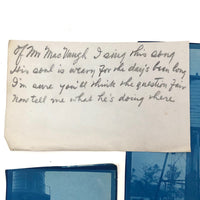 Of Mr MacVaugh I sing this song
His soul is weary for the day's been long
I'm sure you'll think the question fair
Now tell me what he's doing there